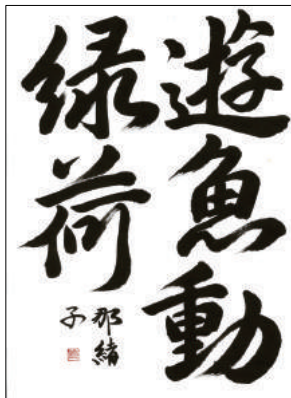 遊魚動
緑荷
那緒
子